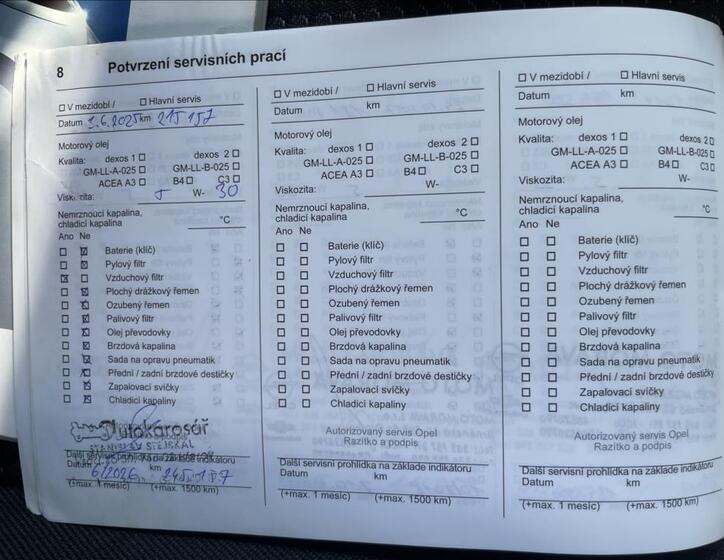 8 Potvrzení servisních prací
☐ V mezidobí / ☐ Hlavní servis
Datum 3.6.2025 km 215 157
Motorový olej
Kvalita: dexos 1 ☐ dexos 2 ☐
GM-LL-A-025 ☐ GM-LL-B-025 ☐
ACEA A3 ☐ B4 ☐ C3 ☐
Viskozita: 5 W- 30
Nemrznoucí kapalina,
chladicí kapalina °C
Ano Ne
☐ ☒ Baterie (klíč)
☐ ☒ Pylový filtr
☒ ☐ Vzduchový filtr
☐ ☒ Plochý drážkový řemen
☐ ☒ Ozubený řemen
☐ ☒ Palivový filtr
☐ ☒ Olej převodovky
☐ ☒ Brzdová kapalina
☐ ☒ Sada na opravu pneumatik
☐ ☒ Přední / zadní brzdové destičky
☐ ☒ Zapalovací svíčky
☐ ☒ Chladicí kapaliny
Autokarosář
STANISLAV STEJSKAL
Další servisní prohlídka na základě indikátoru
Datum km
6/2026 245 187
(+max. 1 měsíc) (+max. 1500 km)
☐ V mezidobí / ☐ Hlavní servis
Datum km
Motorový olej
Kvalita: dexos 1 ☐ dexos 2 ☐
GM-LL-A-025 ☐ GM-LL-B-025 ☐
ACEA A3 ☐ B4 ☐ C3 ☐
Viskozita: W-
Nemrznoucí kapalina,
chladicí kapalina °C
Ano Ne
☐ ☐ Baterie (klíč)
☐ ☐ Pylový filtr
☐ ☐ Vzduchový filtr
☐ ☐ Plochý drážkový řemen
☐ ☐ Ozubený řemen
☐ ☐ Palivový filtr
☐ ☐ Olej převodovky
☐ ☐ Brzdová kapalina
☐ ☐ Sada na opravu pneumatik
☐ ☐ Přední / zadní brzdové destičky
☐ ☐ Zapalovací svíčky
☐ ☐ Chladicí kapaliny
Autorizovaný servis Opel
Razítko a podpis
Další servisní prohlídka na základě indikátoru
Datum km
(+max. 1 měsíc) (+max. 1500 km)
☐ V mezidobí / ☐ Hlavní servis
Datum km
Motorový olej
Kvalita: dexos 1 ☐ dexos 2 ☐
GM-LL-A-025 ☐ GM-LL-B-025 ☐
ACEA A3 ☐ B4 ☐ C3 ☐
Viskozita: W-
Nemrznoucí kapalina,
chladicí kapalina °C
Ano Ne
☐ ☐ Baterie (klíč)
☐ ☐ Pylový filtr
☐ ☐ Vzduchový filtr
☐ ☐ Plochý drážkový řemen
☐ ☐ Ozubený řemen
☐ ☐ Palivový filtr
☐ ☐ Olej převodovky
☐ ☐ Brzdová kapalina
☐ ☐ Sada na opravu pneumatik
☐ ☐ Přední / zadní brzdové destičky
☐ ☐ Zapalovací svíčky
☐ ☐ Chladicí kapaliny
Autorizovaný servis Opel
Razítko a podpis
Další servisní prohlídka na základě indikátoru
Datum km
(+max. 1 měsíc) (+max. 1500 km)